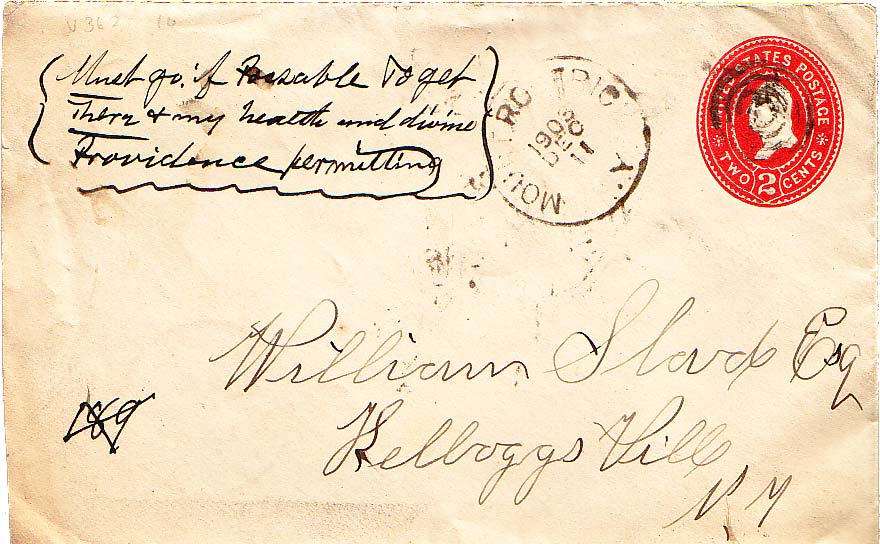 V 362 10
Must go if Possable To get
There & my health and divine
Providence permitting
1903
DEC
11
UNITED STATES POSTAGE
TWO 2 CENTS
William Slade Esq
Kelloggs Ville
N Y
189